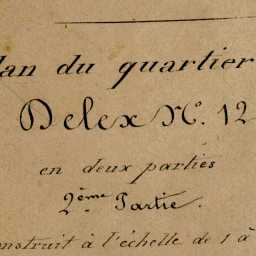 lan du quartier
Delex N.º 12
en deux parties
2.ème Partie.
nstruit à l'échelle de 1 à